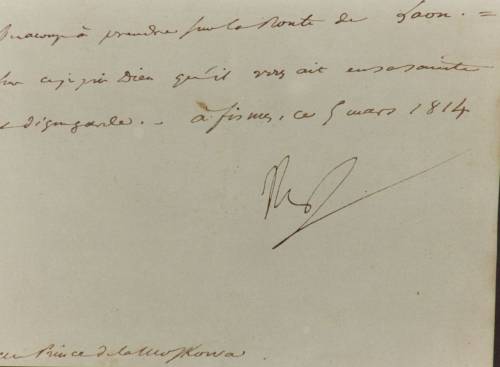 Beaucoup à prendre sur la Route de Laon. =
sur ce je prie Dieu qu'il vous ait en sa sainte
et digne garde. - à fismes, ce 5 mars 1814
Np
au Prince de la Moskowa.